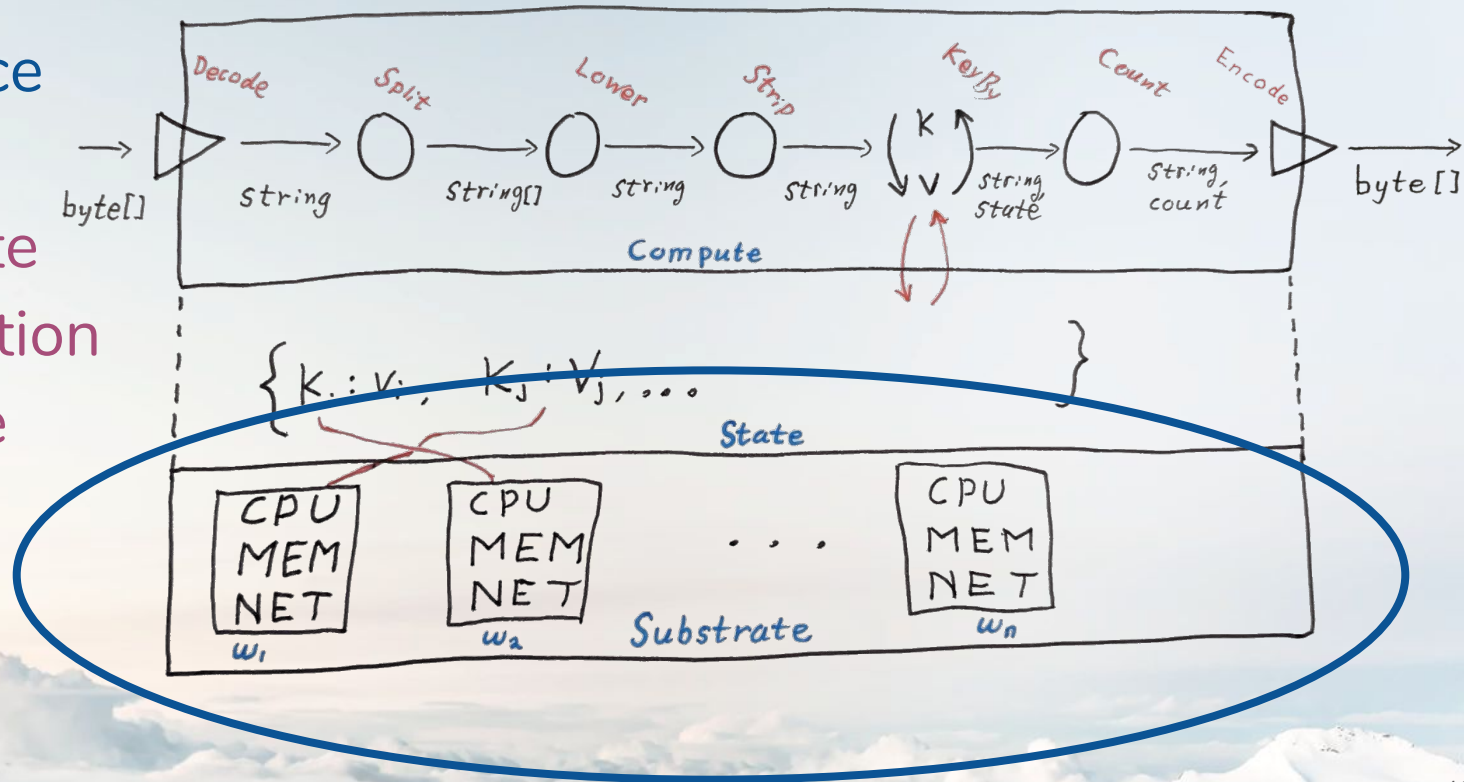 ce
te
tion
e
Decode Split Lower Strip KeyBy Count Encode
K
V
byte[] string string[] string string string, state string, count byte[]
Compute
{ Ki : Vi, Kj : Vj, ... }
State
CPU CPU CPU
MEM MEM ... MEM
NET NET NET
w1 w2 Substrate wn